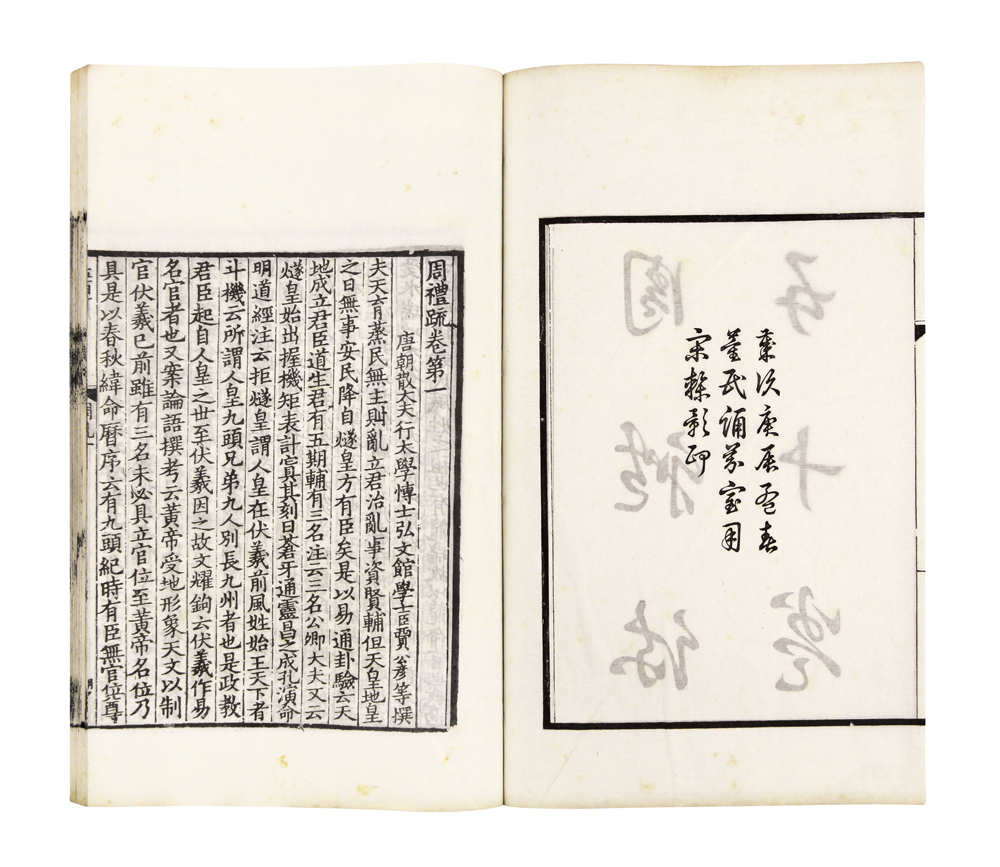 歲次庚辰孟春
董氏誦芬室用
宋槧影印
周禮疏卷第一
唐朝散大夫行太學博士弘文館學士臣賈公彥等撰
夫天育蒸民無主則亂立君治亂事資賢輔但天皇地皇
之日無事安民降自燧皇方有臣矣是以易通卦驗云天
地成立君臣道生君有五期輔有三名注云三名公卿大夫又云
燧皇始出握機矩表計寘其刻曰蒼牙通靈昌之成孔演命
明道經注云拒燧皇謂人皇在伏羲前風姓始王天下者
斗機云所謂人皇九頭兄弟九人別長九州者也是政教
君臣起自人皇之世至伏羲因之故文耀鉤云伏羲作易
名官者也又案論語撰考云黃帝受地形象天文以制
官伏羲已前雖有三名未必具立官位至黃帝名位乃
具是以春秋緯命曆序云有九頭紀時有臣無官位尊